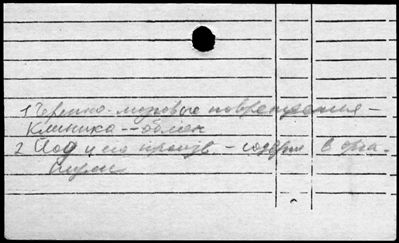 1 Черепно-мозговые повреждения –
Клиника -- обмен
2 Йод и его произв. – содерж. в орга-
низме